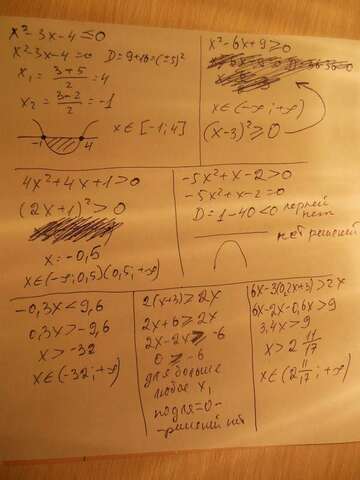 x²-3x-4≤0
x²-3x-4=0 D=9+16=(±5)²
x₁=(3+5)/2=4
x₂=(3-2)/2=-1
-1 4
x∈[-1;4]
x²-6x+9≥0
x∈(-∞;+∞)
(x-3)²≥0
4x²+4x+1>0
(2x+1)²>0
x=-0,5
x∈(-∞;0,5)(0,5;+∞)
-5x²+x-2>0
-5x²+x-2=0
D=1-40<0 корней
нет
нет решений
-0,3x<9,6
0,3x>-9,6
x>-32
x∈(-32;+∞)
2(x+3)≥2x
2x+6≥2x
2x-2x≥-6
0≥-6
для больше
любое x,
=0-
решений нет
6x-3(0,2x+3)>2x
6x-2x-0,6x>9
3,4x>9
x>2 11/17
x∈(2 11/17;+∞)